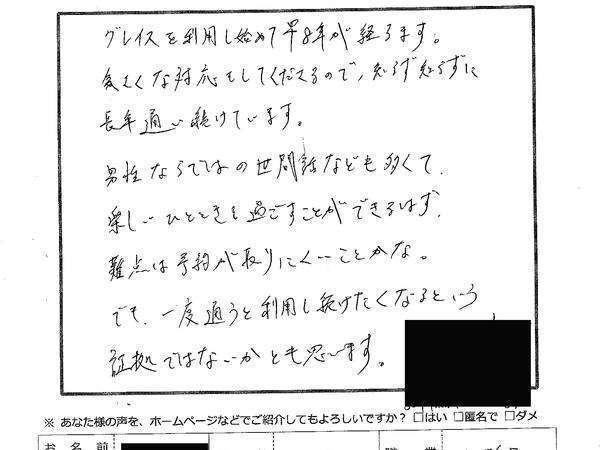 グレイスを利用し始めて早8年が経ちます。
気さくな対応をしてくださるので、知らず知らずに
長年通い続けています。
男性ならではの世間話なども多くて、
楽しいひとときを過ごすことができるはず。
難点は予約が取りにくいことかな。
でも、一度通うと利用し続けたくなるという
証拠ではないかとも思います。
※ あなた様の声を、ホームページなどでご紹介してもよろしいですか？ □はい □匿名で □ダメ
お 名 前
職 業